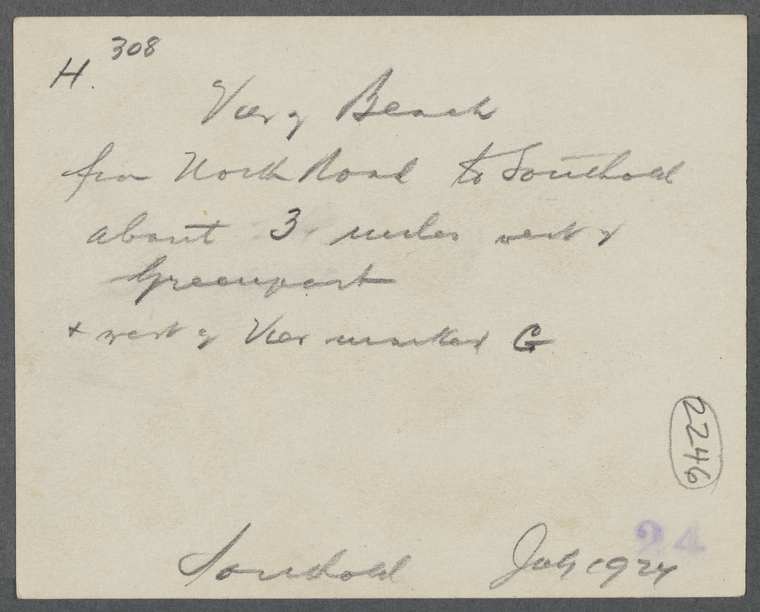 308
H.
View of Beach
from North Road to Southold
about 3 miles west of
Greenport
+ west of View marked G
2246
24
Southold July 1924